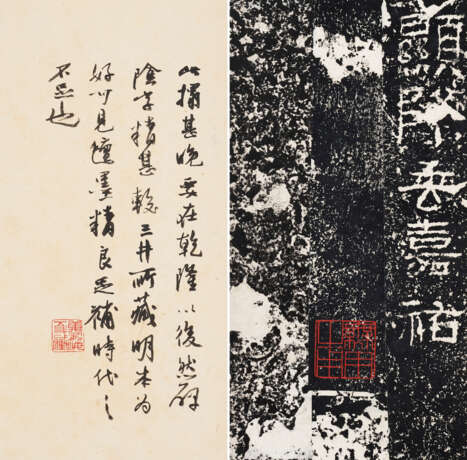 此搨甚晚要在乾隆以後然碑
陰字精甚較三井所藏明本為
好可見氈墨精良足補時代之
不足也
顯降垂嘉祐